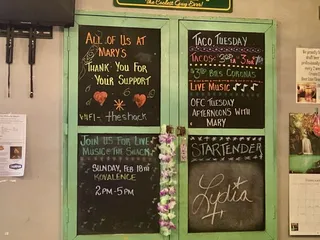 The Coolest Guy Ever!
All of Us at
Mary's
Thank You For
Your Support
WIFI - theshack
Join Us for Live
Music @ the Shack
Sunday, Feb 18th
Kovalence
2pm-5pm
Taco Tuesday
Tacos
Coronas
Live Music
OFC Tuesday
Afternoons With
Mary
Startender
Lydia